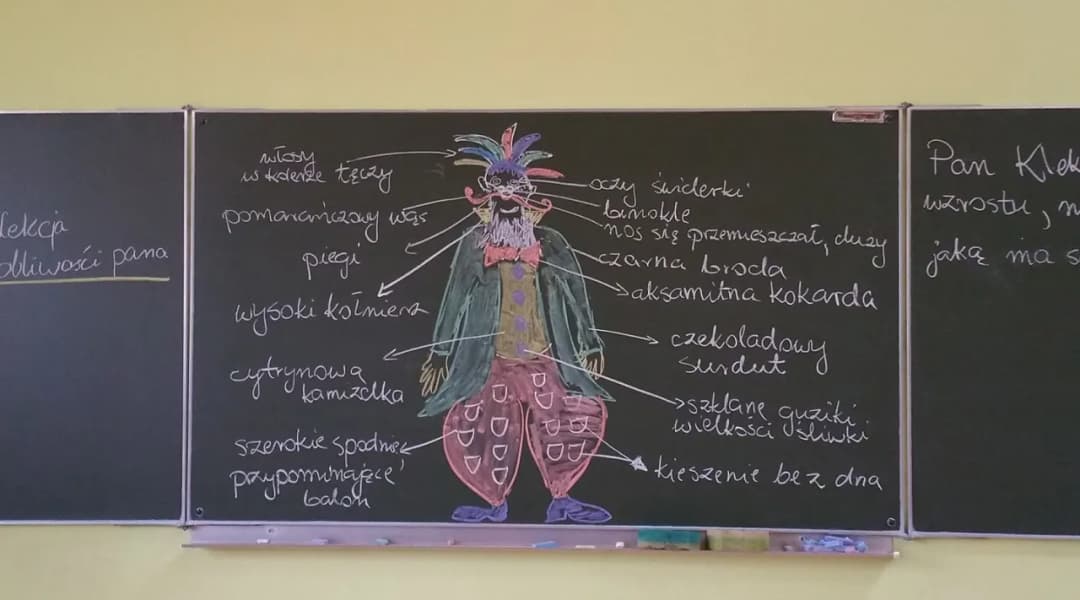 lekcja
obliwości pana
włosy
w kolorze tęczy
pomarańczowy wąs
piegi
wysoki kołnierz
cytrynowa
kamizelka
szerokie spodnie
przypominające
balon
oczy świderki
binokle
nos się przemieszczał, duży
czarna broda
aksamitna kokarda
czekoladowy
surdut
szklane guziki
wielkości śliwki
kieszenie bez dna
Pan Klek
wzrostu, n
jaką ma s